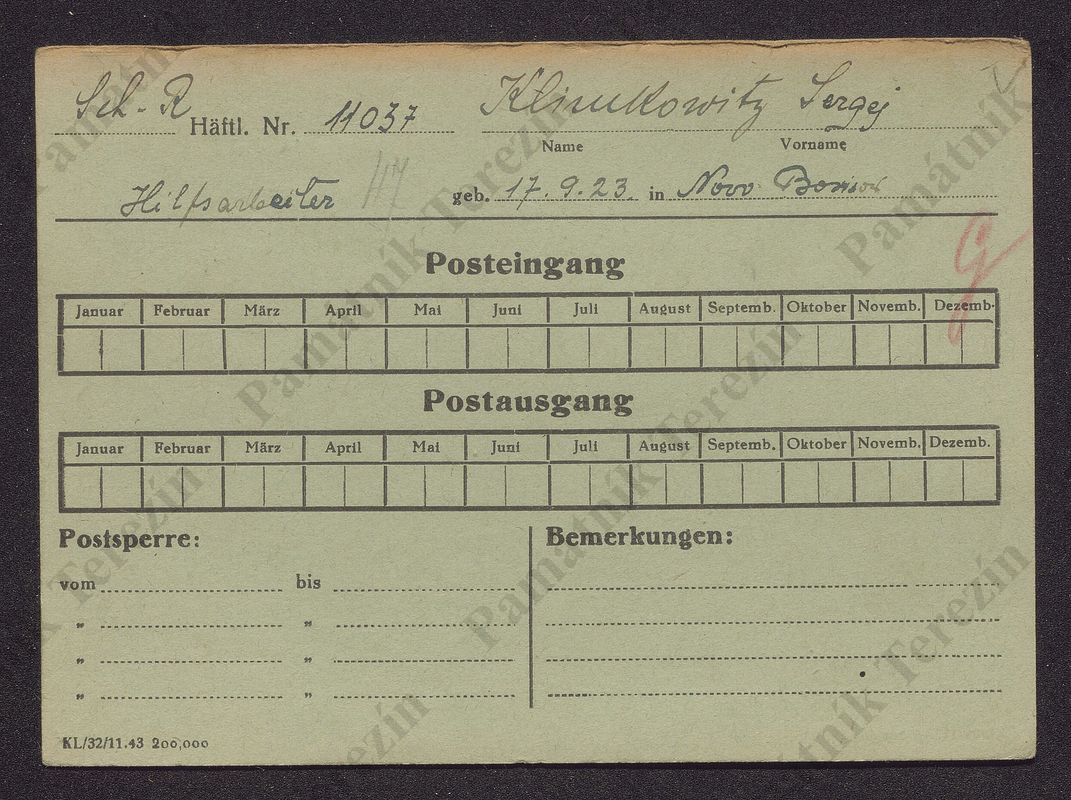 Sch - R Häftl. Nr. 11037 Klimkowitz Sergej
Name Vorname
Hilfsarbeiter geb. 17.9.23 in Novo
Posteingang
Januar Februar März April Mai Juni Juli August Septemb. Oktober Novemb. Dezemb.
Postausgang
Januar Februar März April Mai Juni Juli August Septemb. Oktober Novemb. Dezemb.
Postsperre: Bemerkungen:
vom bis
" "
" "
" "
KL/32/11.43 200,000
Památník Terezín